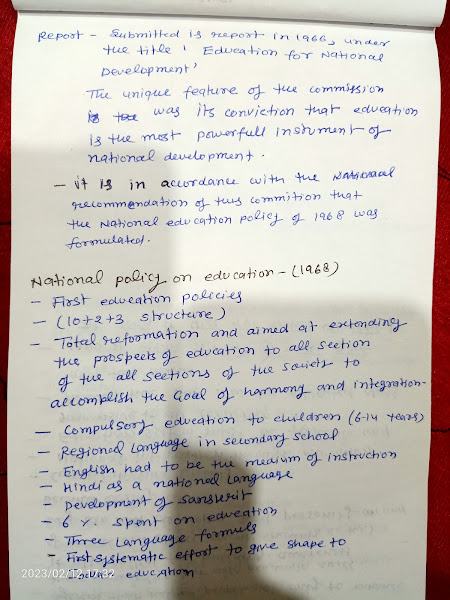 Report - Submitted is report in 1966, under
the title ' Education for National
Development'
The unique feature of the commission
was its conviction that education
is the most powerfull instrument of
national development.
- it is in accordance with the
recommendation of this commition that
the National education policy of 1968 was
formulated.
National policy on education - (1968)
- First education policies
- (10+2+3 structure)
- Total reformation and aimed at extending
the prospects of education to all section
of the all sections of the society to
accomplish the Goal of harmony and integration-
- Compulsory education to children (6-14 years)
- Regional Language in secondary school
- English had to be the medium of instruction
- Hindi as a national language
- Development of Sanskrit
- 6 %. Spent on education
- Three Language formula
- First systematic effort to give shape to
education
2023/02/12 11:32